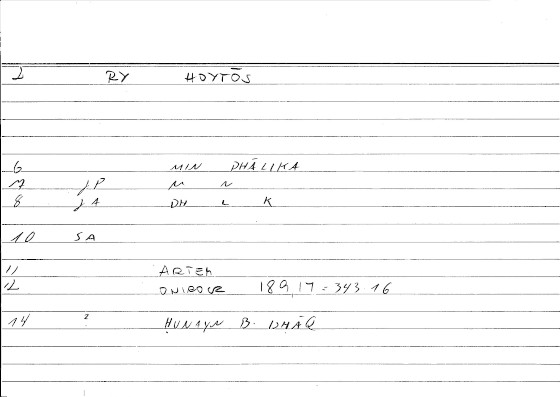 1 RY HOYTŌS
6 MIN DHĀLIKA
7 JP M N
8 JA DH L K
10 SA
11 ARTEM
12 ONIROCR 189,17 = 343 16
14 ? ḤUNAYN B. ISḤĀQ